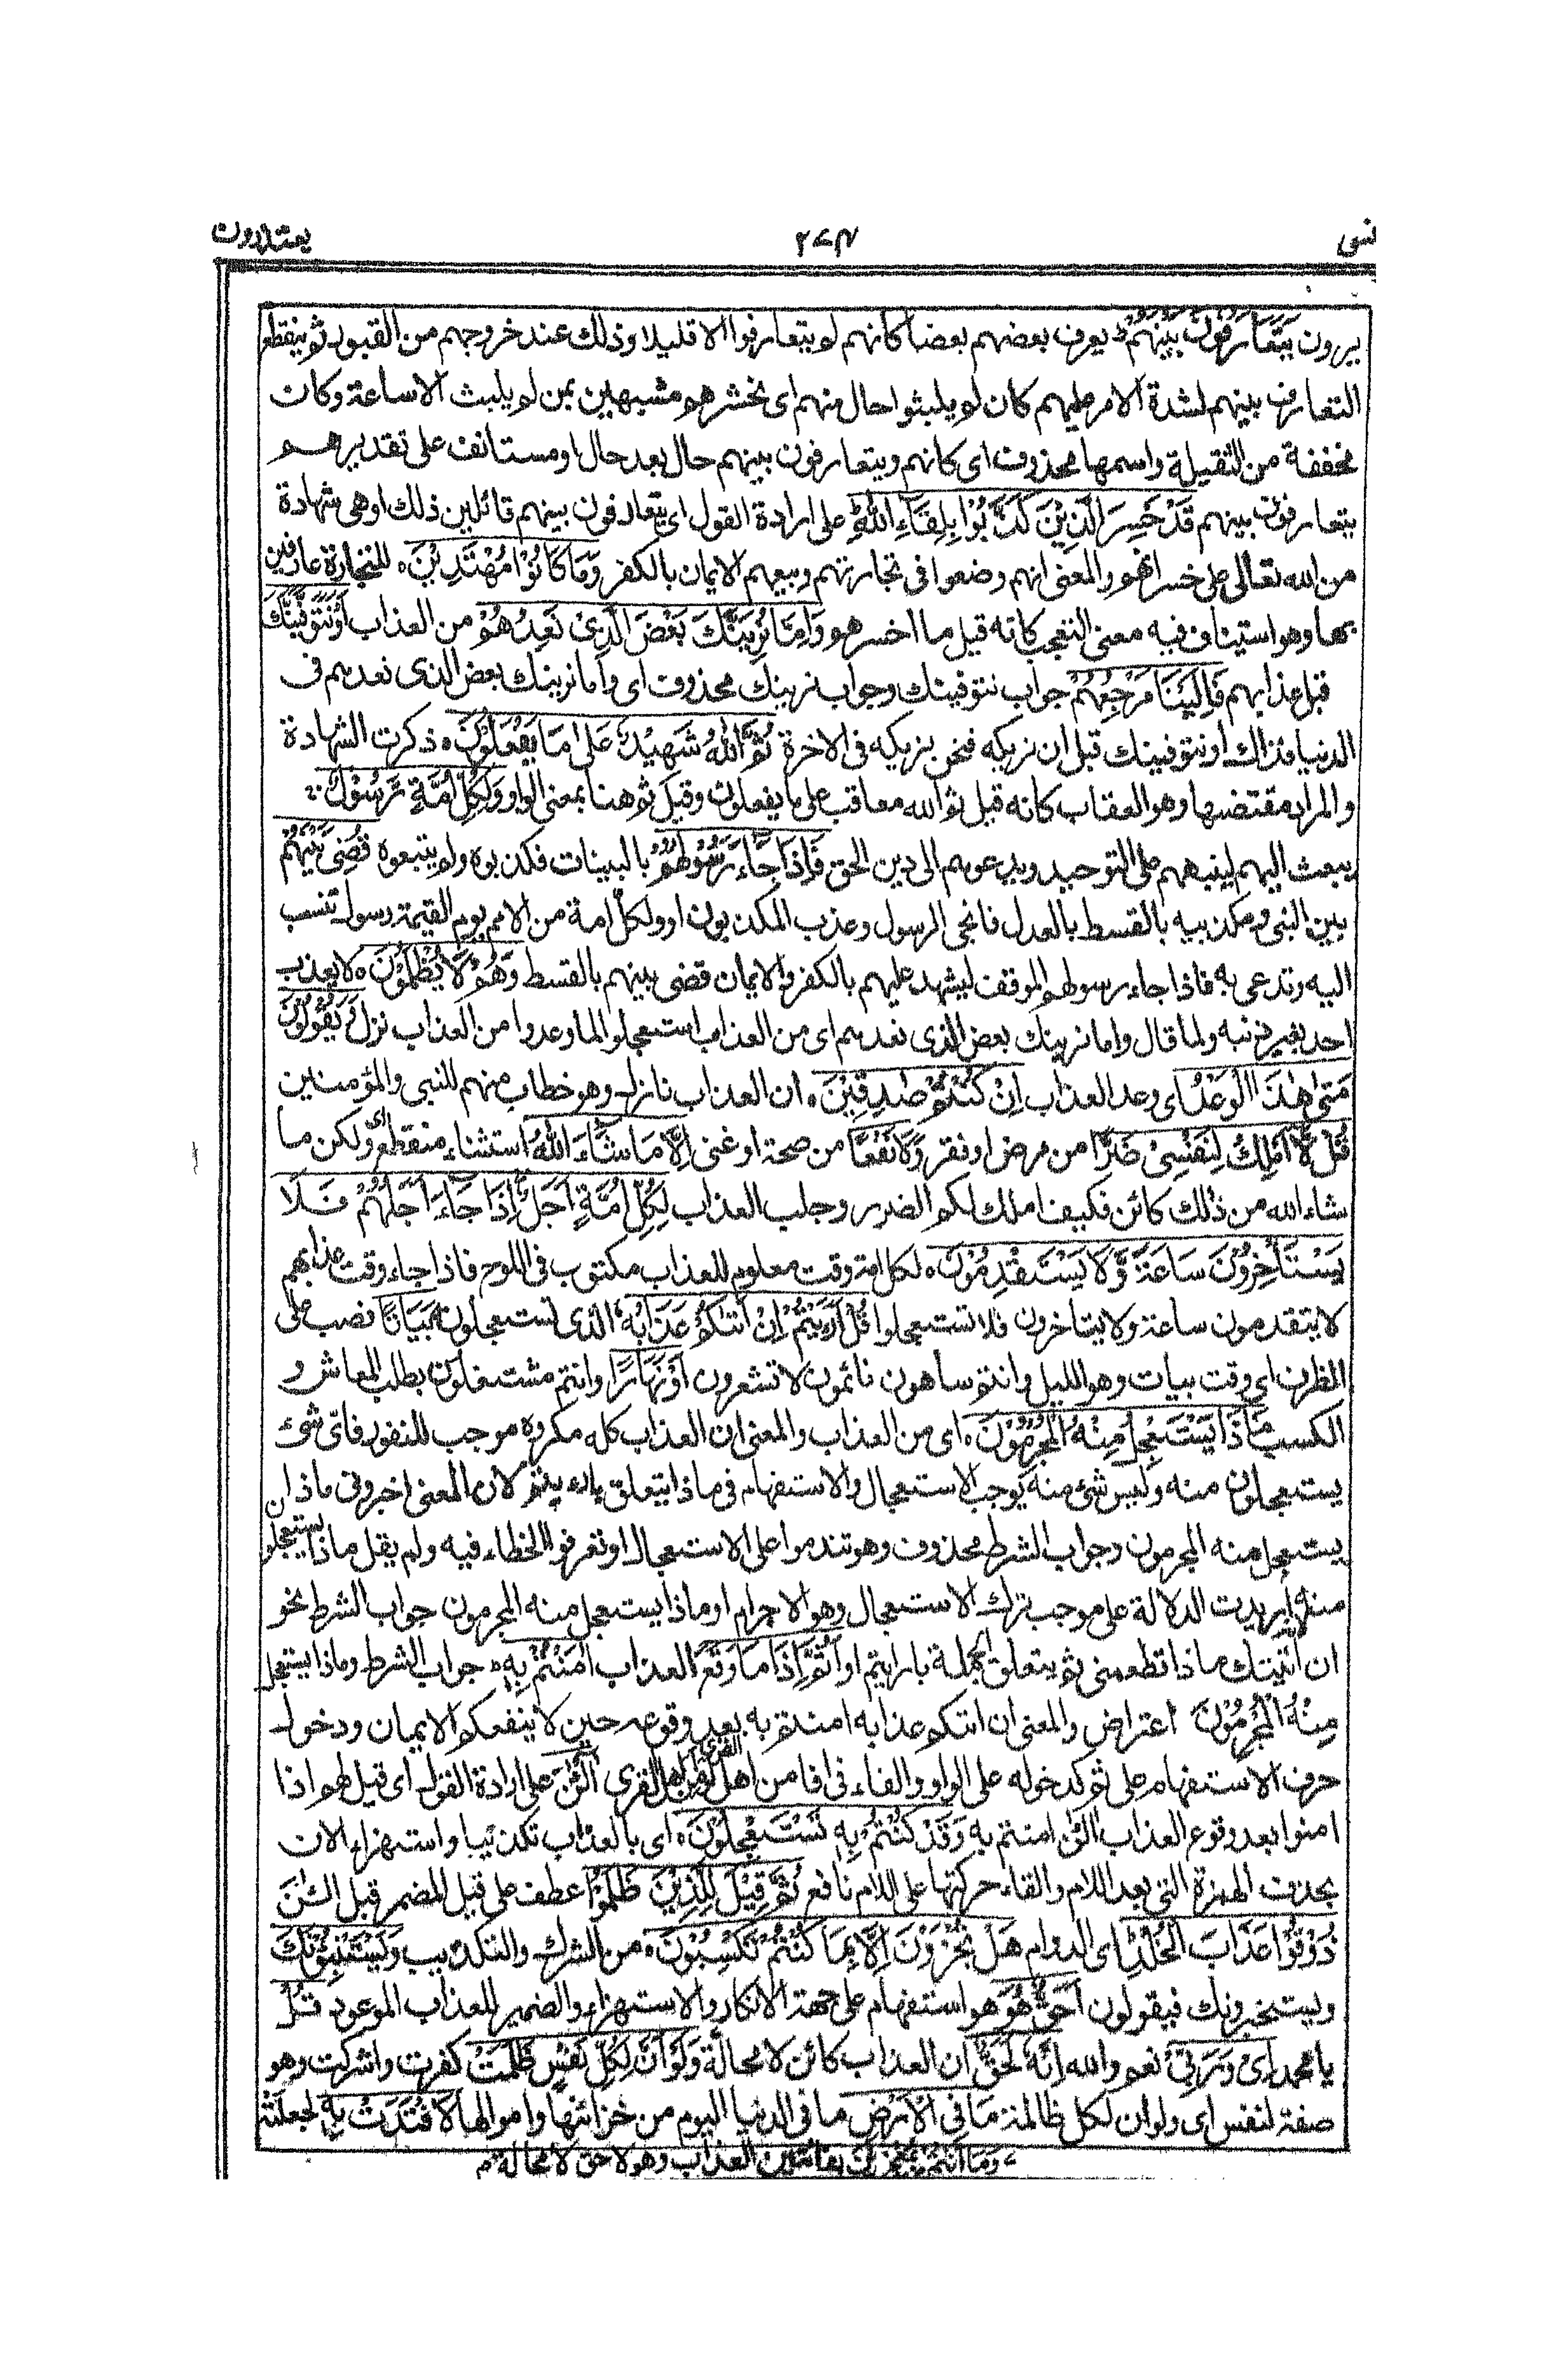 يعتذرون
٢٧٤
نسى
يرون يَتَعَارَفُونَ بَيْنَهُمْ ط يعرف بعضهم بعضا كانهم لم يتعارفوا الا قليلا وذلك عند خروجهم من القبور ثم ينقطع
التعارف بينهم لشدة الامر عليهم كان لم يلبثوا حال منهم اى نحشرهم مشبهين بمن لم يلبث الا ساعة وكان
مخففة من الثقيلة واسمها محذوف اى كانهم ويتعارفون بينهم حال بعد حال او مستانف على تقدير هم
يتعارفون بينهم قَدْ خَسِرَ الَّذِيْنَ كَذَّبُوْا بِلِقَآءِ اللّٰهِ على ارادة القول اى يتعارفون بينهم قائلين ذلك او هى شهادة
من الله تعالى على خسرانهم والمعنى انهم وضعوا فى تجارتهم وبيعهم الايمان بالكفر وَمَا كَانُوْا مُهْتَدِيْنَ ه للتجارة عارفين
بها وهو استيناف فيه معنى التعجب كانه قيل ما اخسرهم وَاِمَّا نُرِيَنَّكَ بَعْضَ الَّذِىْ نَعِدُهُمْ من العذاب اَوْ نَتَوَفَّيَنَّكَ
قبل عذابهم فَاِلَيْنَا مَرْجِعُهُمْ جواب نتوفينك وجواب نرينك محذوف اى واما نرينك بعض الذى نعدهم فى
الدنيا فذاك او نتوفينك قبل ان نريكه فنحن نريكه فى الاخرة ثُمَّ اللّٰهُ شَهِيْدٌ عَلٰى مَا يَفْعَلُوْنَ ه ذكرت الشهادة
والمراد مقتضاها وهو العقاب كانه قيل ثم الله معاقب على ما يفعلون وقيل ثم هنا بمعنى الواو وَلِكُلِّ اُمَّةٍ رَّسُوْلٌ
يبعث اليهم لينبههم على التوحيد ويدعوهم الى دين الحق فَاِذَا جَآءَ رَسُوْلُهُمْ بالبينات فكذبوه ولم يتبعوه قُضِىَ بَيْنَهُمْ
بين النبى ومكذبيه بالقسط بالعدل فانجى الرسول وعذب المكذبون او ولكل امة من الامم يوم القيمة رسول تنسب
اليه وتدعى به فاذا جاء رسولهم الموقف ليشهد عليهم بالكفر والايمان قضى بينهم بالقسط وَهُمْ لَا يُظْلَمُوْنَ ه لا يعذب
احد بغير ذنبه ولما قال واما نرينك بعض الذى نعدهم اى من العذاب استعجلوا لما وعدوا من العذاب نزل وَيَقُوْلُوْنَ
مَتٰى هٰذَا الْوَعْدُ اى وعد العذاب اِنْ كُنْتُمْ صٰدِقِيْنَ ه ان العذاب نازل وهو خطاب منهم للنبى والمؤمنين
قُلْ لَّا اَمْلِكُ لِنَفْسِىْ ضَرًّا من مرض او فقر وَّلَا نَفْعًا من صحة او غنى اِلَّا مَا شَآءَ اللّٰهُ استثناء منقطع اى ولكن ما
شاء الله من ذلك كائن فكيف املك لكم الضرر وجلب العذاب لِكُلِّ اُمَّةٍ اَجَلٌ اِذَا جَآءَ اَجَلُهُمْ فَلَا
يَسْتَاْخِرُوْنَ سَاعَةً وَّلَا يَسْتَقْدِمُوْنَ ه لكل امة وقت معلوم للعذاب مكتوب فى اللوح فاذا جاء وقت عذابهم
لا يتقدمون ساعة ولا يتاخرون فلا تستعجلوا قُلْ اَرَءَيْتُمْ اِنْ اَتٰىكُمْ عَذَابُهٗ الذى تستعجلونه بَيَاتًا نصب على
الظرف اى وقت بيات وهو الليل وانتم ساهون نائمون لا تشعرون اَوْ نَهَارًا وانتم مشتغلون بطلب المعاش و
الكسب مَّاذَا يَسْتَعْجِلُ مِنْهُ الْمُجْرِمُوْنَ ه اى من العذاب والمعنى ان العذاب كله مكروه موجب للنفور فاىّ شىء
يستعجلون منه وليس شىء منه يوجب الاستعجال والاستفهام فى ماذا يتعلق بارءيتم لان المعنى اخبرونى ماذا
يستعجل منه المجرمون وجواب الشرط محذوف وهو تندموا على الاستعجال او تعرفوا الخطاء فيه ولم يقل ماذا يستعجلون
منه اريدت الدلالة على موجب ترك الاستعجال وهو الاجرام او ماذا يستعجل منه المجرمون جواب الشرط نحو
ان اتيتك ماذا تطعمنى ثم يتعلق الجملة بارايتم او اَثُمَّ اِذَا مَا وَقَعَ العذاب اٰمَنْتُمْ بِهٖ ه جواب الشرط وماذا يستعجل
مِنْهُ الْمُجْرِمُوْنَ اعتراض والمعنى ان اتىكم عذابه امنتم به بعد وقوعه حين لا ينفعكم الايمان ودخول
حرف الاستفهام على ثم كدخوله على الواو والفاء فى افامن اهل القرى او امن اهل القرى اٰلْئٰنَ على ارادة القول اى قيل لهم اذا
امنوا بعد وقوع العذاب آلئن امنتم به وَقَدْ كُنْتُمْ بِهٖ تَسْتَعْجِلُوْنَ ه اى بالعذاب تكذيبا واستهزاء الان
بحذف الهمزة التى بعد اللام والقاء حركتها على اللام نافع ثُمَّ قِيْلَ لِلَّذِيْنَ ظَلَمُوْا عطف على قيل المضمر قبل الئن
ذُوْقُوْا عَذَابَ الْخُلْدِ اى الدوام هَلْ تُجْزَوْنَ اِلَّا بِمَا كُنْتُمْ تَكْسِبُوْنَ ه من الشرك والتكذيب وَيَسْتَنْبِئُوْنَكَ
ويستخبرونك فيقولون اَحَقٌّ هُوَ هو استفهام على جهة الانكار والاستهزاء والضمير للعذاب الموعود قُلْ
يا محمد اِىْ وَرَبِّىْ نعم والله اِنَّهٗ لَحَقٌّ ان العذاب كائن لا محالة وَلَوْ اَنَّ لِكُلِّ نَفْسٍ ظَلَمَتْ كفرت واشركت وهو
صفة لنفس اى ولو ان لكل ظالمة مَا فِى الْاَرْضِ ما فى الدنيا اليوم من خزائنها واموالها لَافْتَدَتْ بِهٖ لجعلته
وَمَا اَنْتُمْ بِمُعْجِزِيْنَ بفائتين العذاب وهو لاحق لا محالة